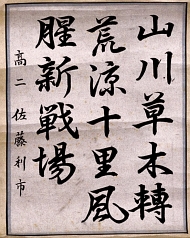 山川草木轉
荒涼十里風
腥新戰場
高二 佐藤利市